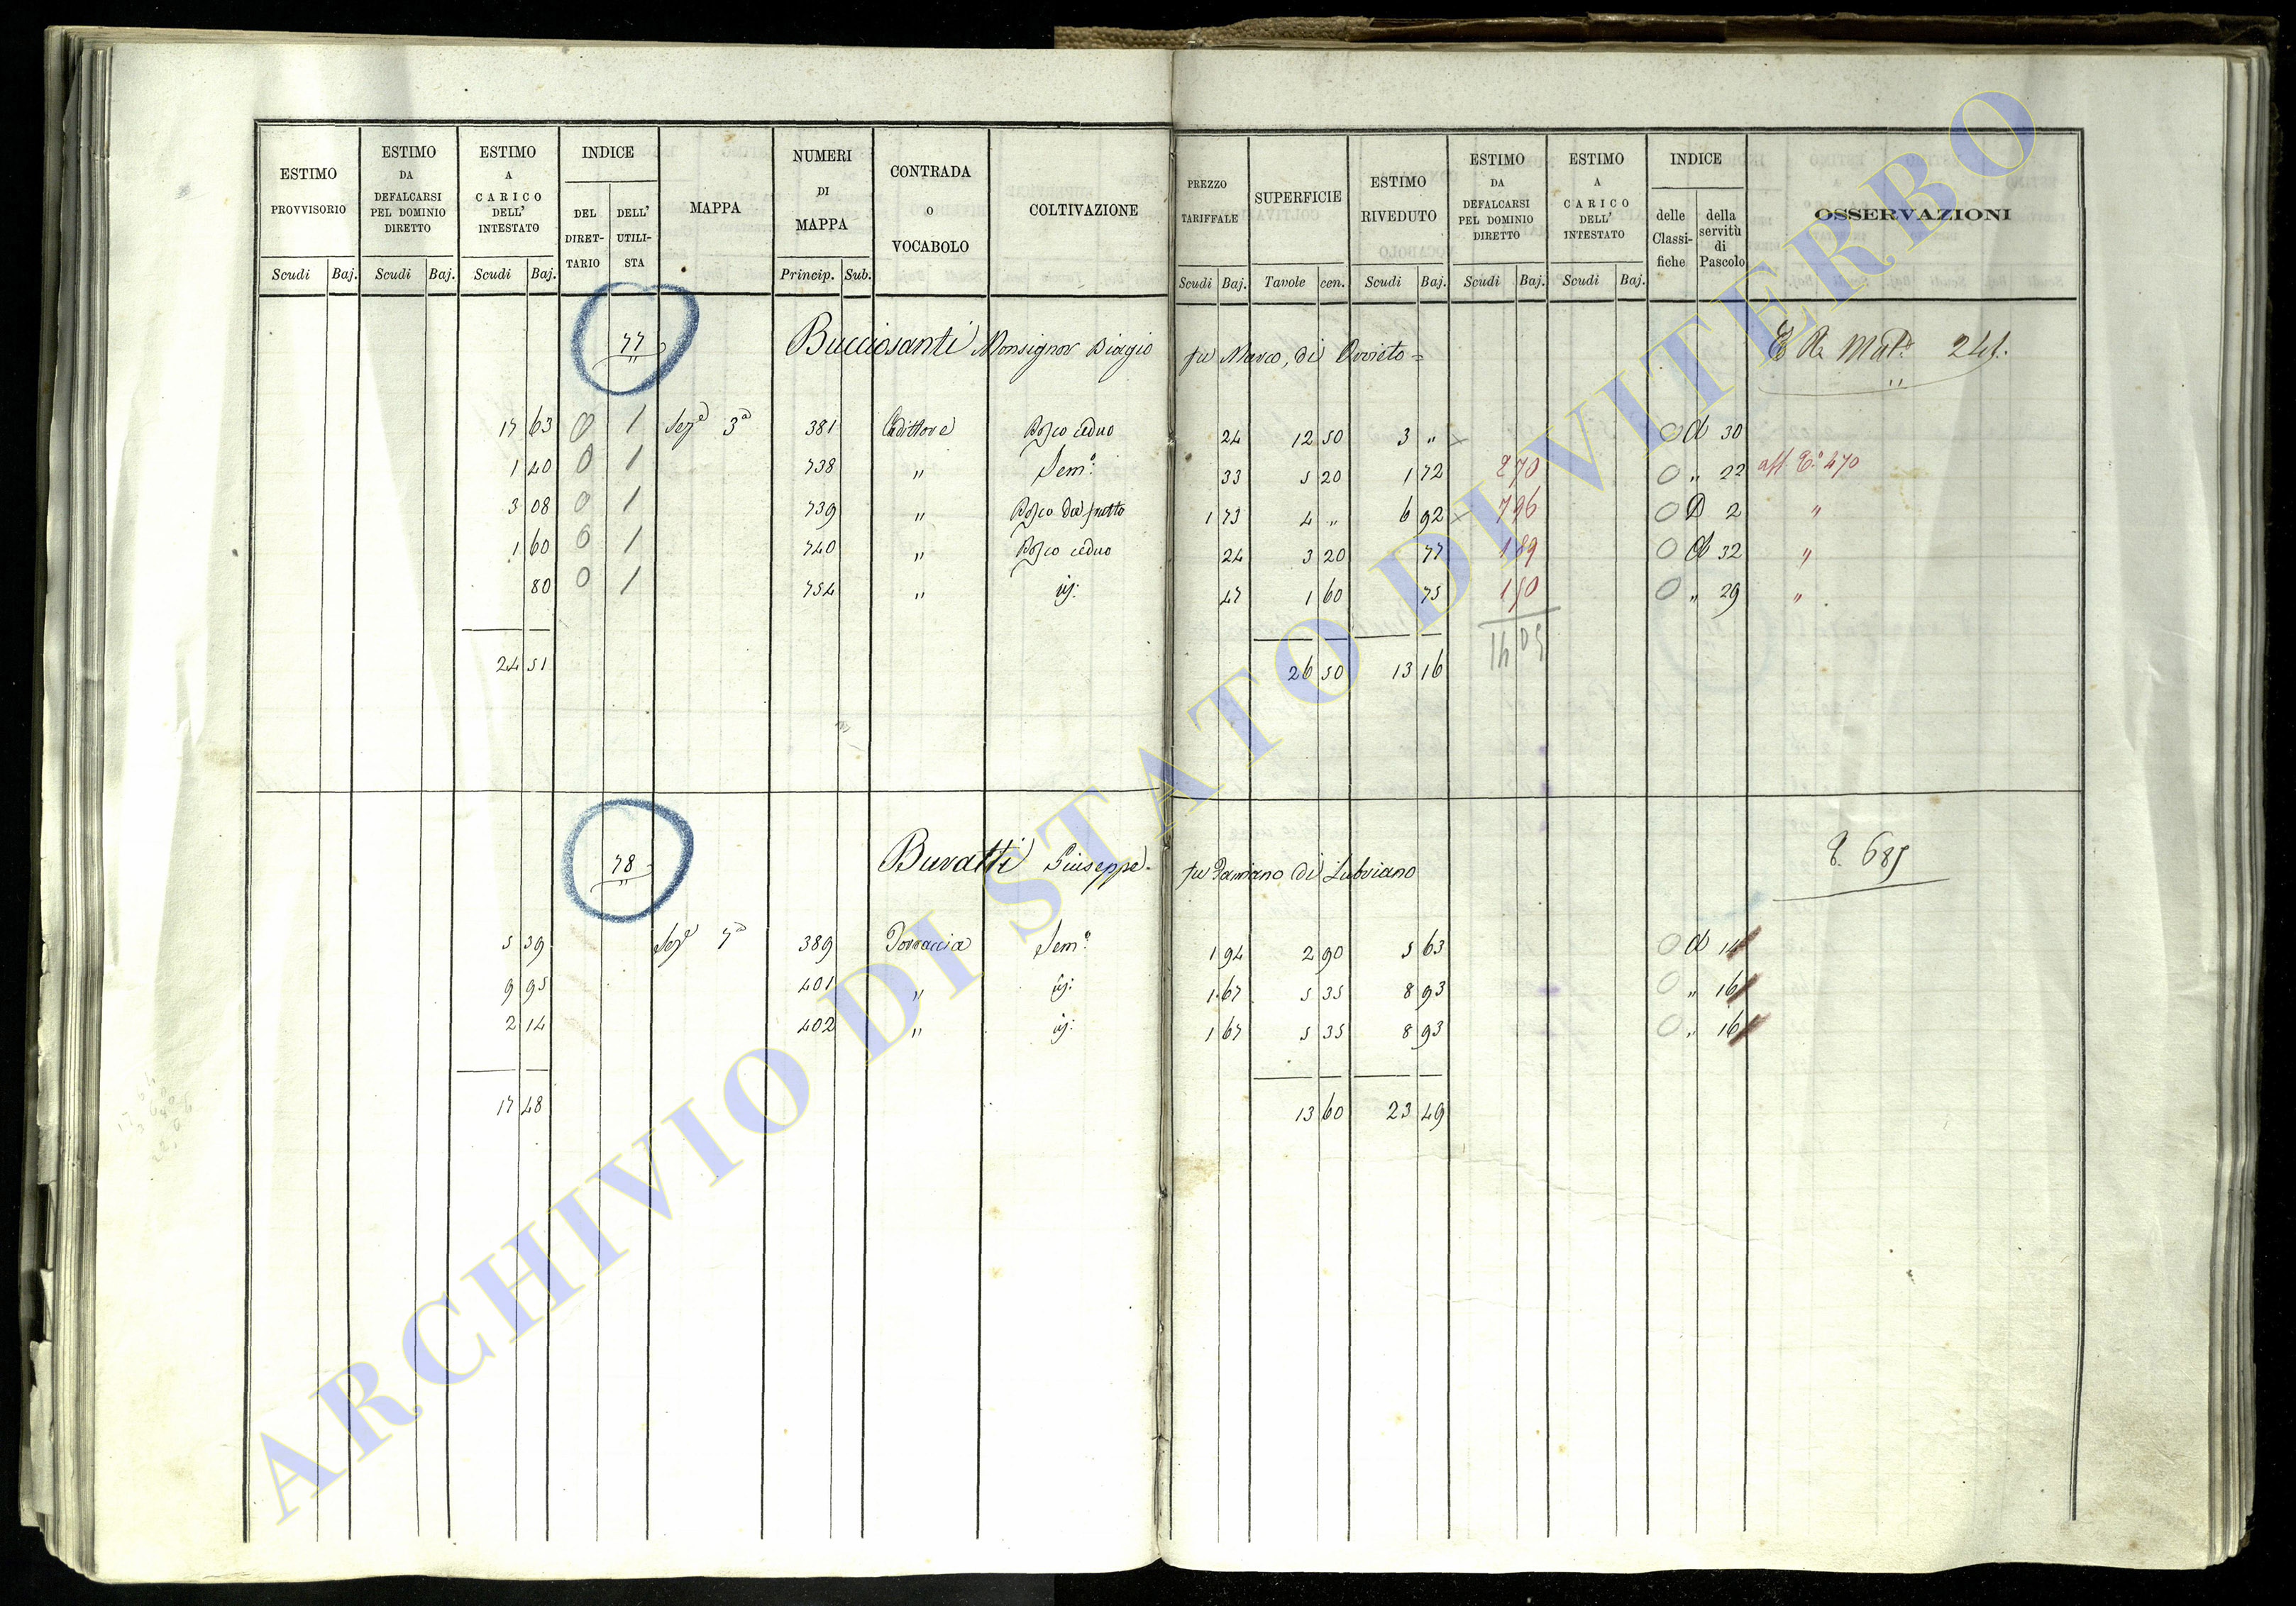 ESTIMO PROVVISORIO | ESTIMO DA DEFALCARSI PEL DOMINIO DIRETTO | ESTIMO A CARICO DELL' INTESTATO | INDICE | MAPPA | NUMERI DI MAPPA | CONTRADA O VOCABOLO | COLTIVAZIONE | PREZZO TARIFFALE | SUPERFICIE | ESTIMO RIVEDUTO | ESTIMO DA DEFALCARSI PEL DOMINIO DIRETTO | ESTIMO A CARICO DELL' INTESTATO | INDICE | OSSERVAZIONI
DEL DIRETTARIO | DELL' UTILISTA | delle Classifiche | della servitù di Pascolo
Scudi Baj. | Scudi Baj. | Scudi Baj. | Princip. Sub. | Scudi Baj. | Tavole cen. | Scudi Baj. | Scudi Baj. | Scudi Baj.
77 Bucciosanti Monsignor Biagio fu Marco, di Orvieto = 241.
17 63 0 1 Sez.e 3a 381 Bosco ceduo 24 12 50 3 " 0 30
1 40 0 1 738 " Sem.o 33 5 20 1 72 2 70 0 " 22 470
3 08 0 1 739 " Bosco da frutto 1 73 4 " 6 92 7 96 0 D 2 "
1 60 0 1 740 " Bosco ceduo 24 3 20 77 1 89 0 32 "
80 0 1 754 " 47 1 60 75 1 50 0 " 29 "
24 51 26 50 13 16 14 05
78 Buratti Giuseppe fu Damiano di Lubriano 685
5 39 Sez.e 7a 389 Torraccia Sem.o 1 94 2 90 5 63 0 14
9 95 401 " 1 67 5 35 8 93 0 " 16
2 14 402 " 1 67 5 35 8 93 0 " 16
17 48 13 60 23 49
ARCHIVIO DI STATO DI VITERBO